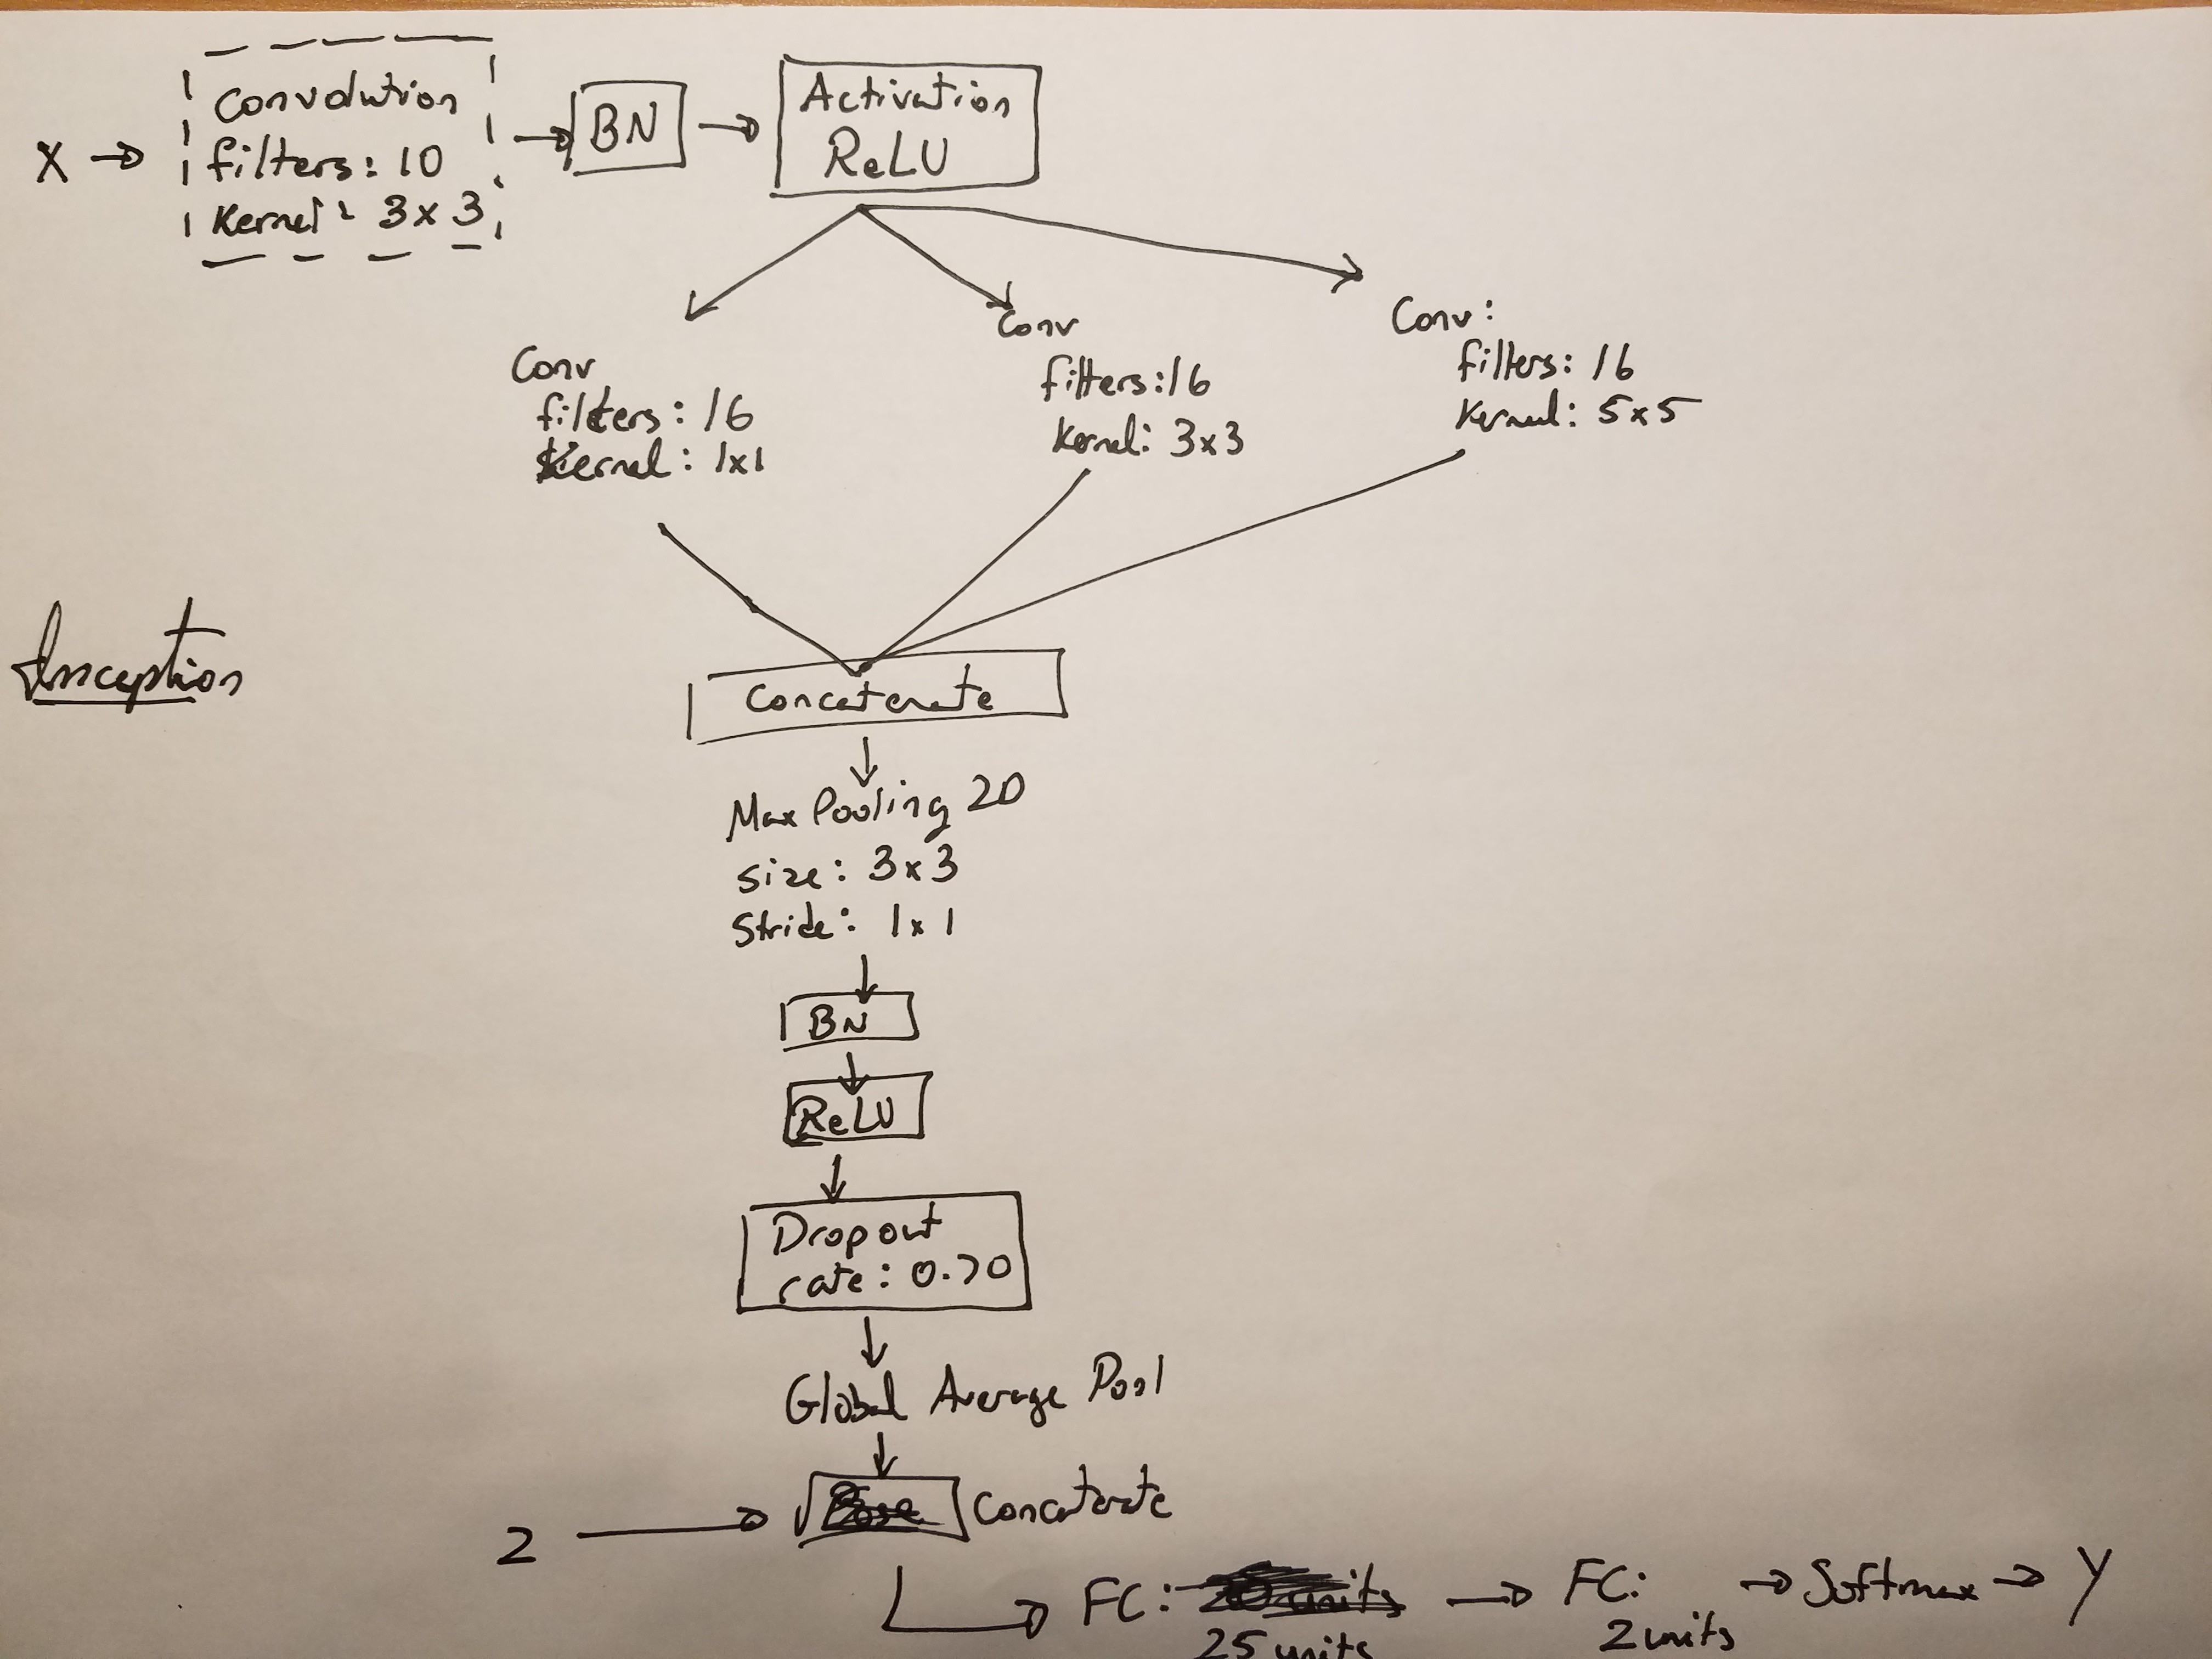 X
Convolution
filters: 10
Kernel: 3x3
BN
Activation
ReLU
Conv
filters: 16
Kernel: 1x1
Conv
filters: 16
Kernel: 3x3
Conv:
filters: 16
Kernel: 5x5
Inception
Concatenate
Max Pooling 2D
size: 3x3
Stride: 1x1
BN
ReLU
Dropout
rate:
Global Average Pool
Concatenate
FC:
25 units
FC:
2 units
Softmax
Y